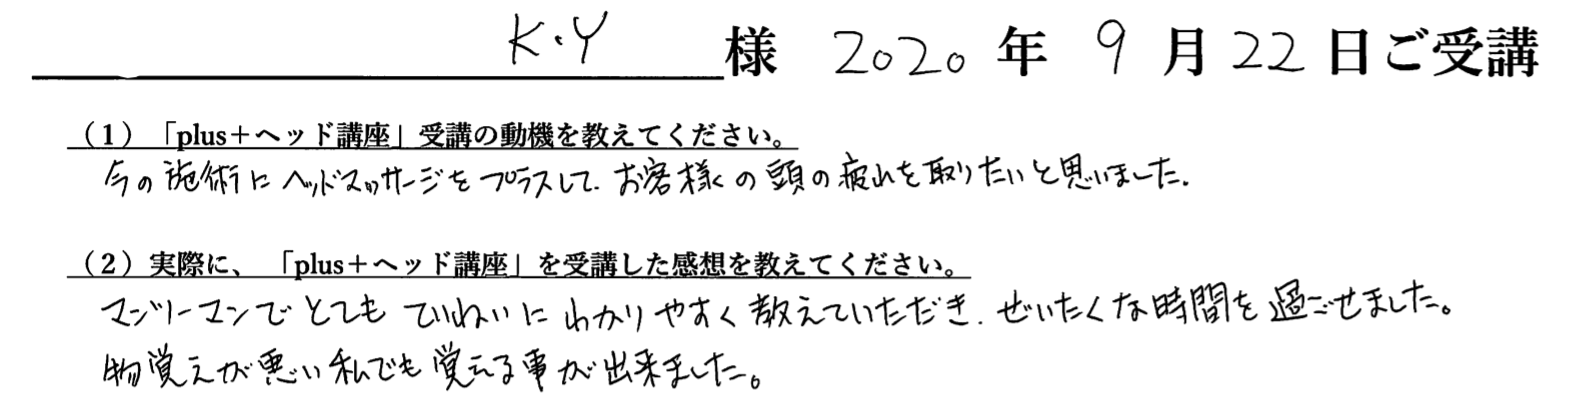 K・Y 様 2020 年 9 月 22 日ご受講
（1）「plus＋ヘッド講座」受講の動機を教えてください。
今の施術にヘッドマッサージをプラスして、お客様の頭の疲れを取りたいと思いました。
（2）実際に、「plus＋ヘッド講座」を受講した感想を教えてください。
マンツーマンでとてもていねいにわかりやすく教えていただき、ぜいたくな時間を過ごせました。
物覚えが悪い私でも覚える事が出来ました。